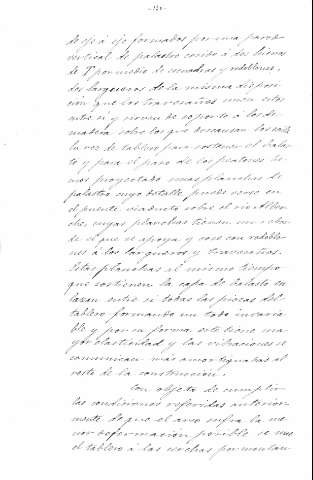 de eje á eje formados por una pared
vertical de palastro cosido á dos hierros
de T por medio de escuadras y redoblones,
dos largueros de la misma disposi-
ción que los travesaños unen estos
entre si y sirven de soporte á los de
madera sobre los que descansan los rails
la vez de tablero para sostener el balas-
to y para el paso de los peatones he-
mos proyectado unas planchas de
palastro cuyo detalle puede verse en
el puente viaducto sobre el rio
cuyas planchas tienen un
de el que se apoya y cose con redoblo-
nes á los largueros y travesaños.
Estas planchas al mismo tiempo
que sostienen la capa de balasto en-
lazan entre si todas las piezas del
tablero formando un todo invaria-
ble y por su forma este tiene ma-
yor elasticidad y las vibraciones se
comunican más amortiguadas al
resto de la construcción.
Con objeto de cumplir
las condiciones referidas anterior-
mente de que el arco sufra la me-
nor deformación posible se une
el tablero á las por montan-